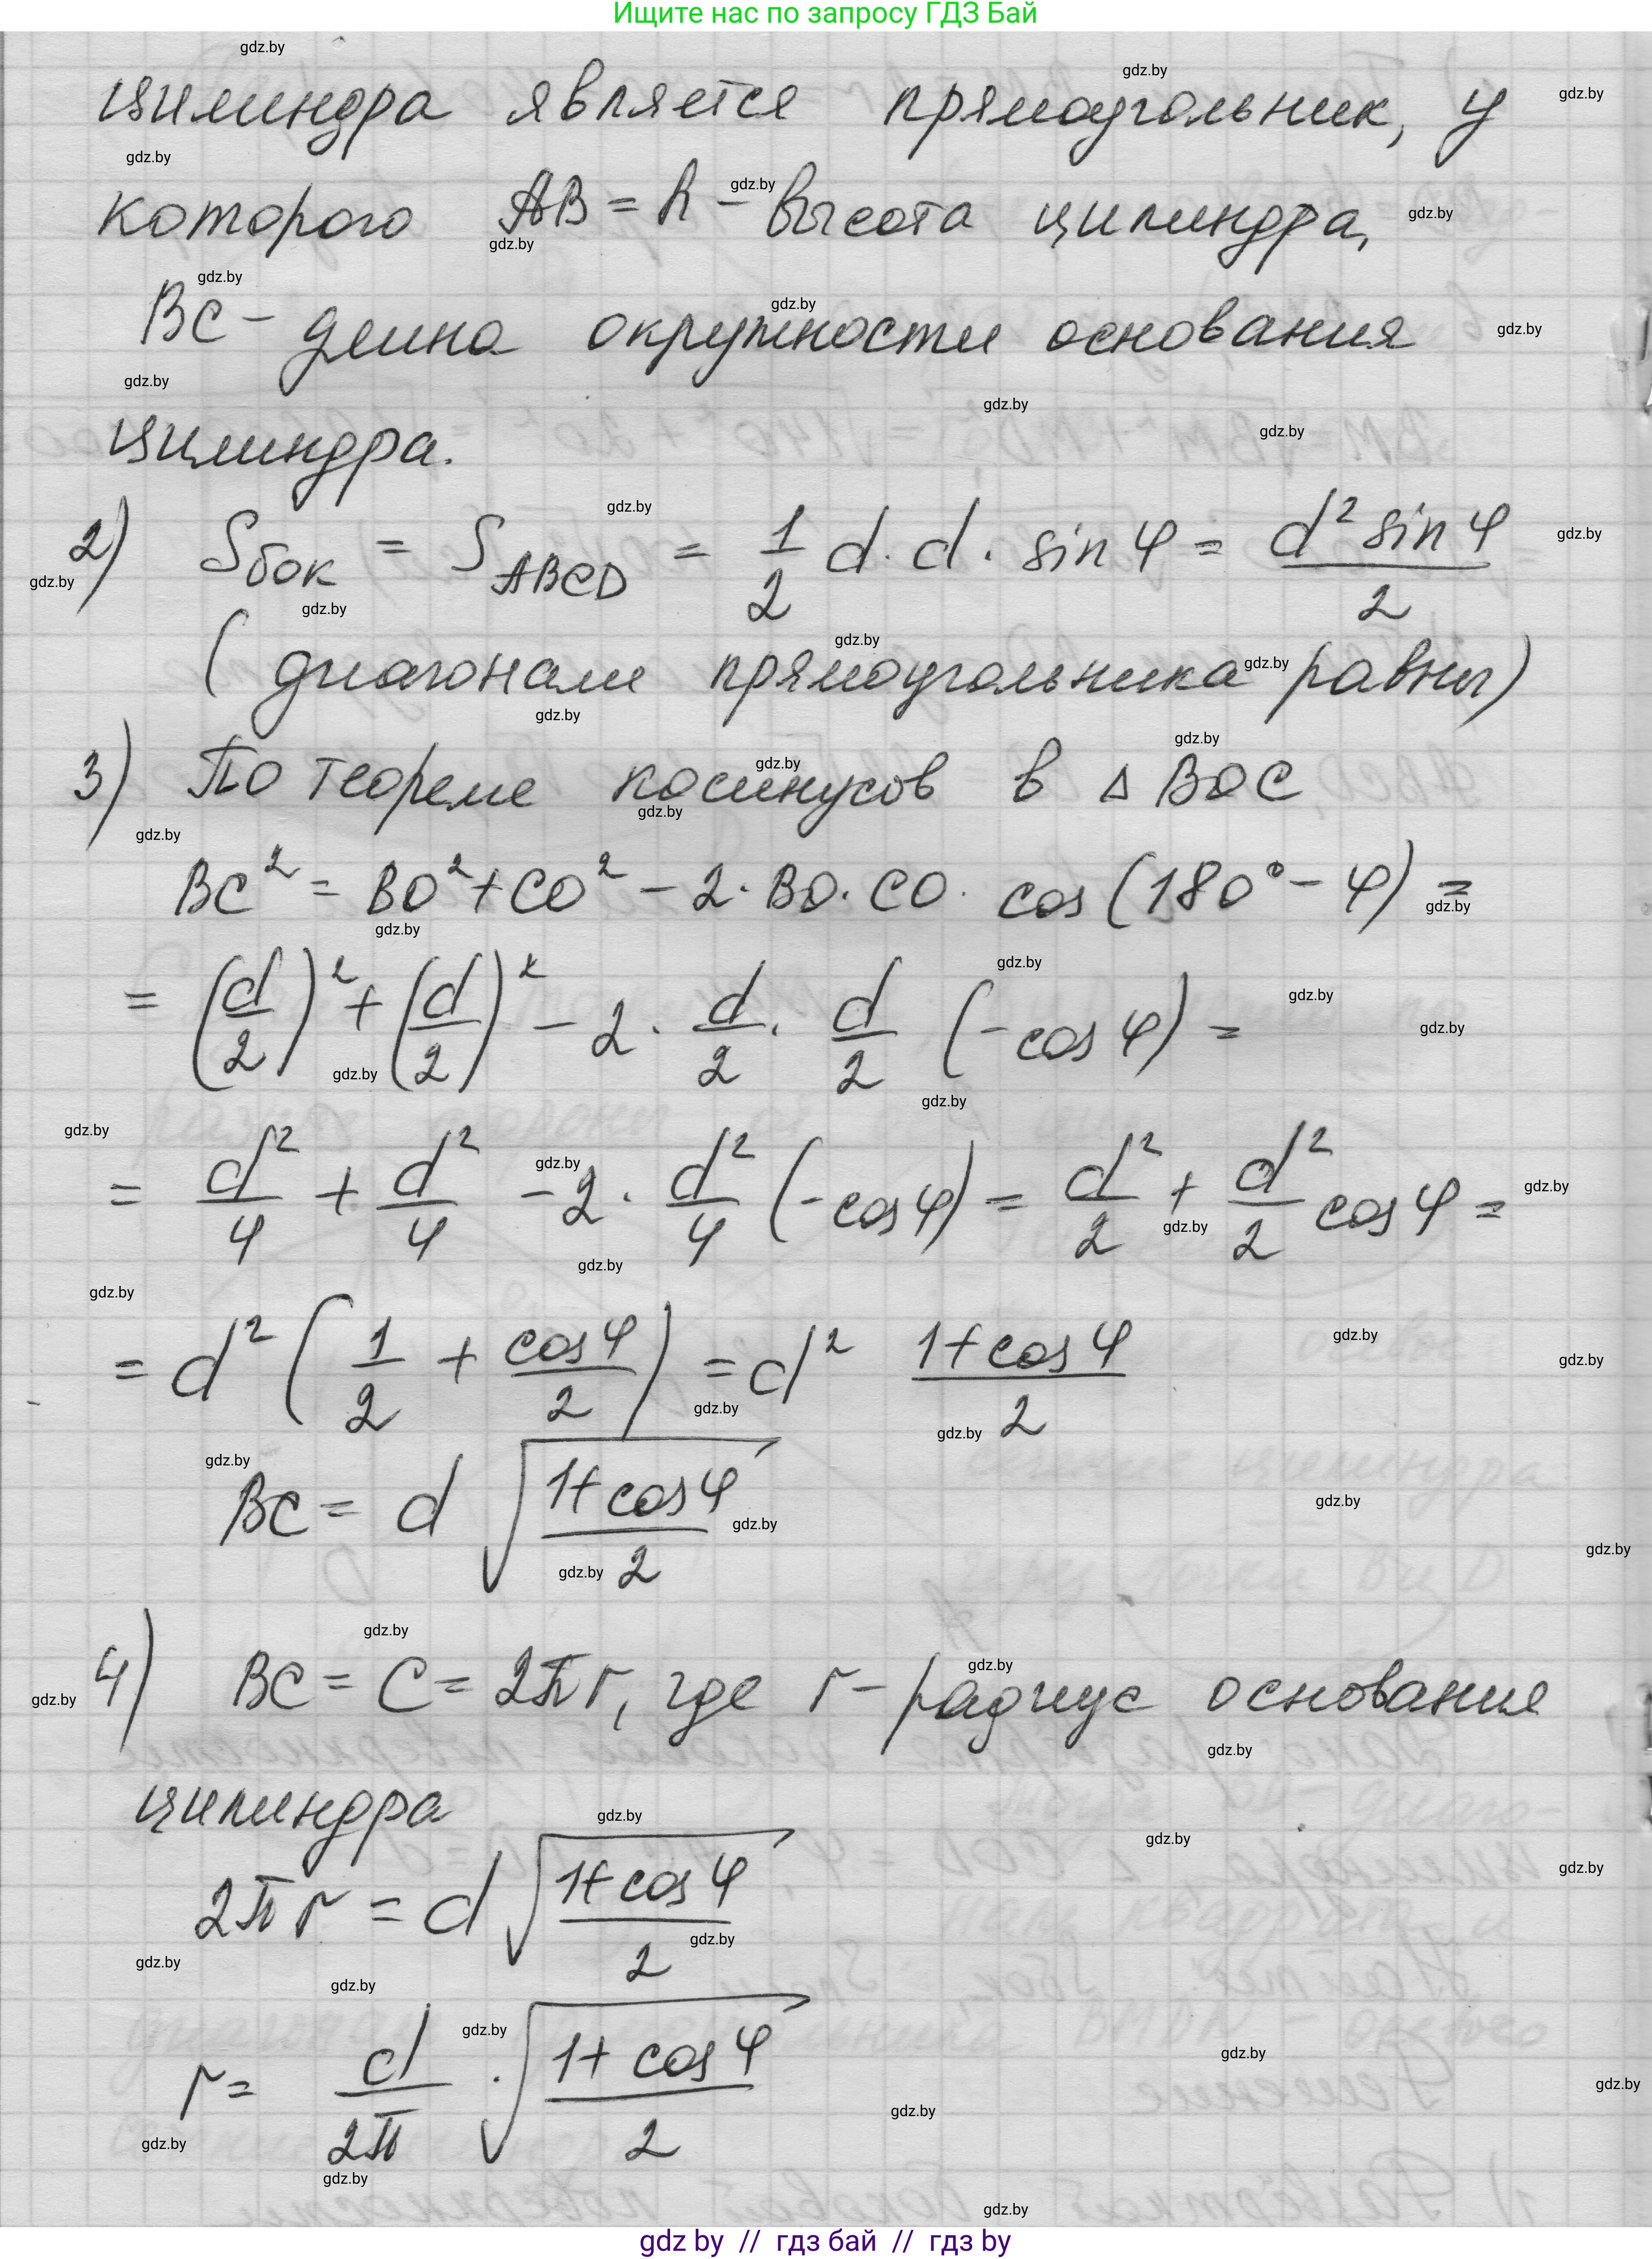 Ищите нас по запросу ГДЗ Бай
цилиндра является прямоугольник, у
которого AB = h – высота цилиндра,
BC – длина окружности основания
цилиндра.
2) Sбок = S_ABCD = 1/2 d · d · sin φ = d² sin φ / 2
( диагонали прямоугольника равны)
3) По теореме косинусов в △ BOC
BC² = BO² + CO² – 2 · BO · CO · cos (180° – φ) =
= (d/2)² + (d/2)² – 2 · d/2 · d/2 (– cos φ) =
= d²/4 + d²/4 – 2 · d²/4 (– cos φ) = d²/2 + d²/2 cos φ =
= d² ( 1/2 + cos φ/2 ) = d² (1 + cos φ)/2
BC = d √((1 + cos φ)/2)
4) BC = C = 2πr, где r – радиус основания
цилиндра
2πr = d √((1 + cos φ)/2)
r = d/2π · √((1 + cos φ)/2)
gdz by // гдз бай // гдз by